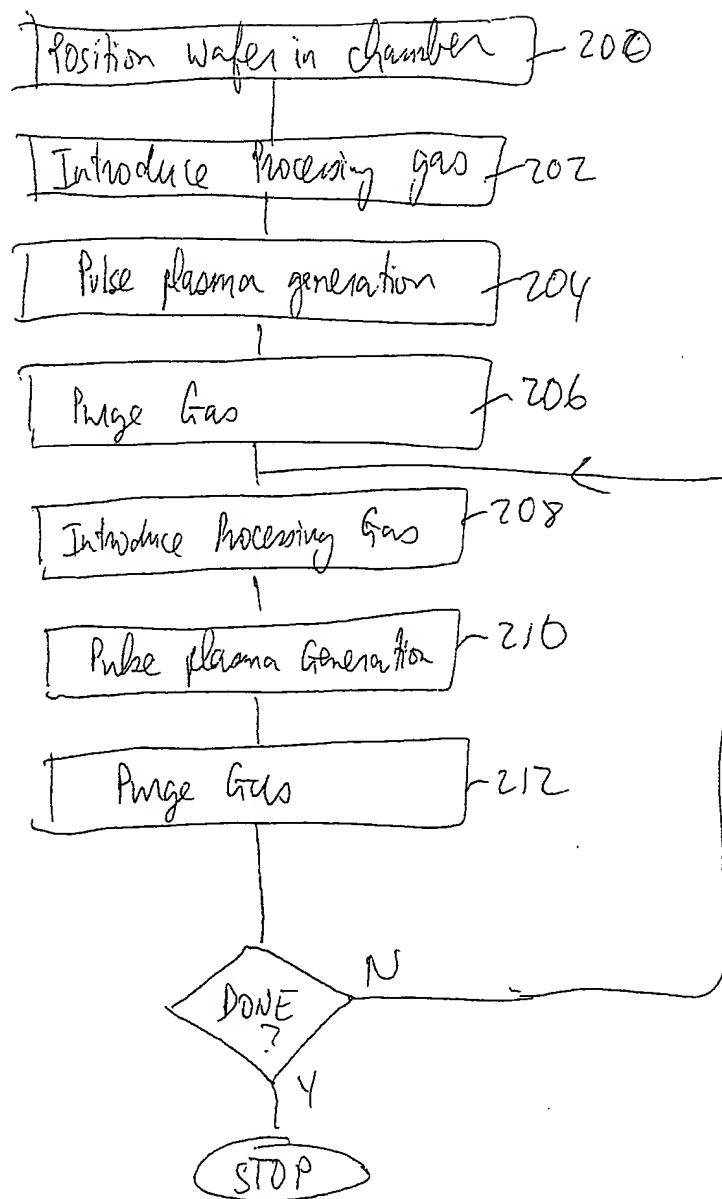 Position wafer in chamber 200
Introduce Processing gas 202
Pulse plasma generation 204
Purge Gas 206
Introduce Processing Gas 208
Pulse plasma Generation 210
Purge Gas 212
DONE
?
N
Y
STOP